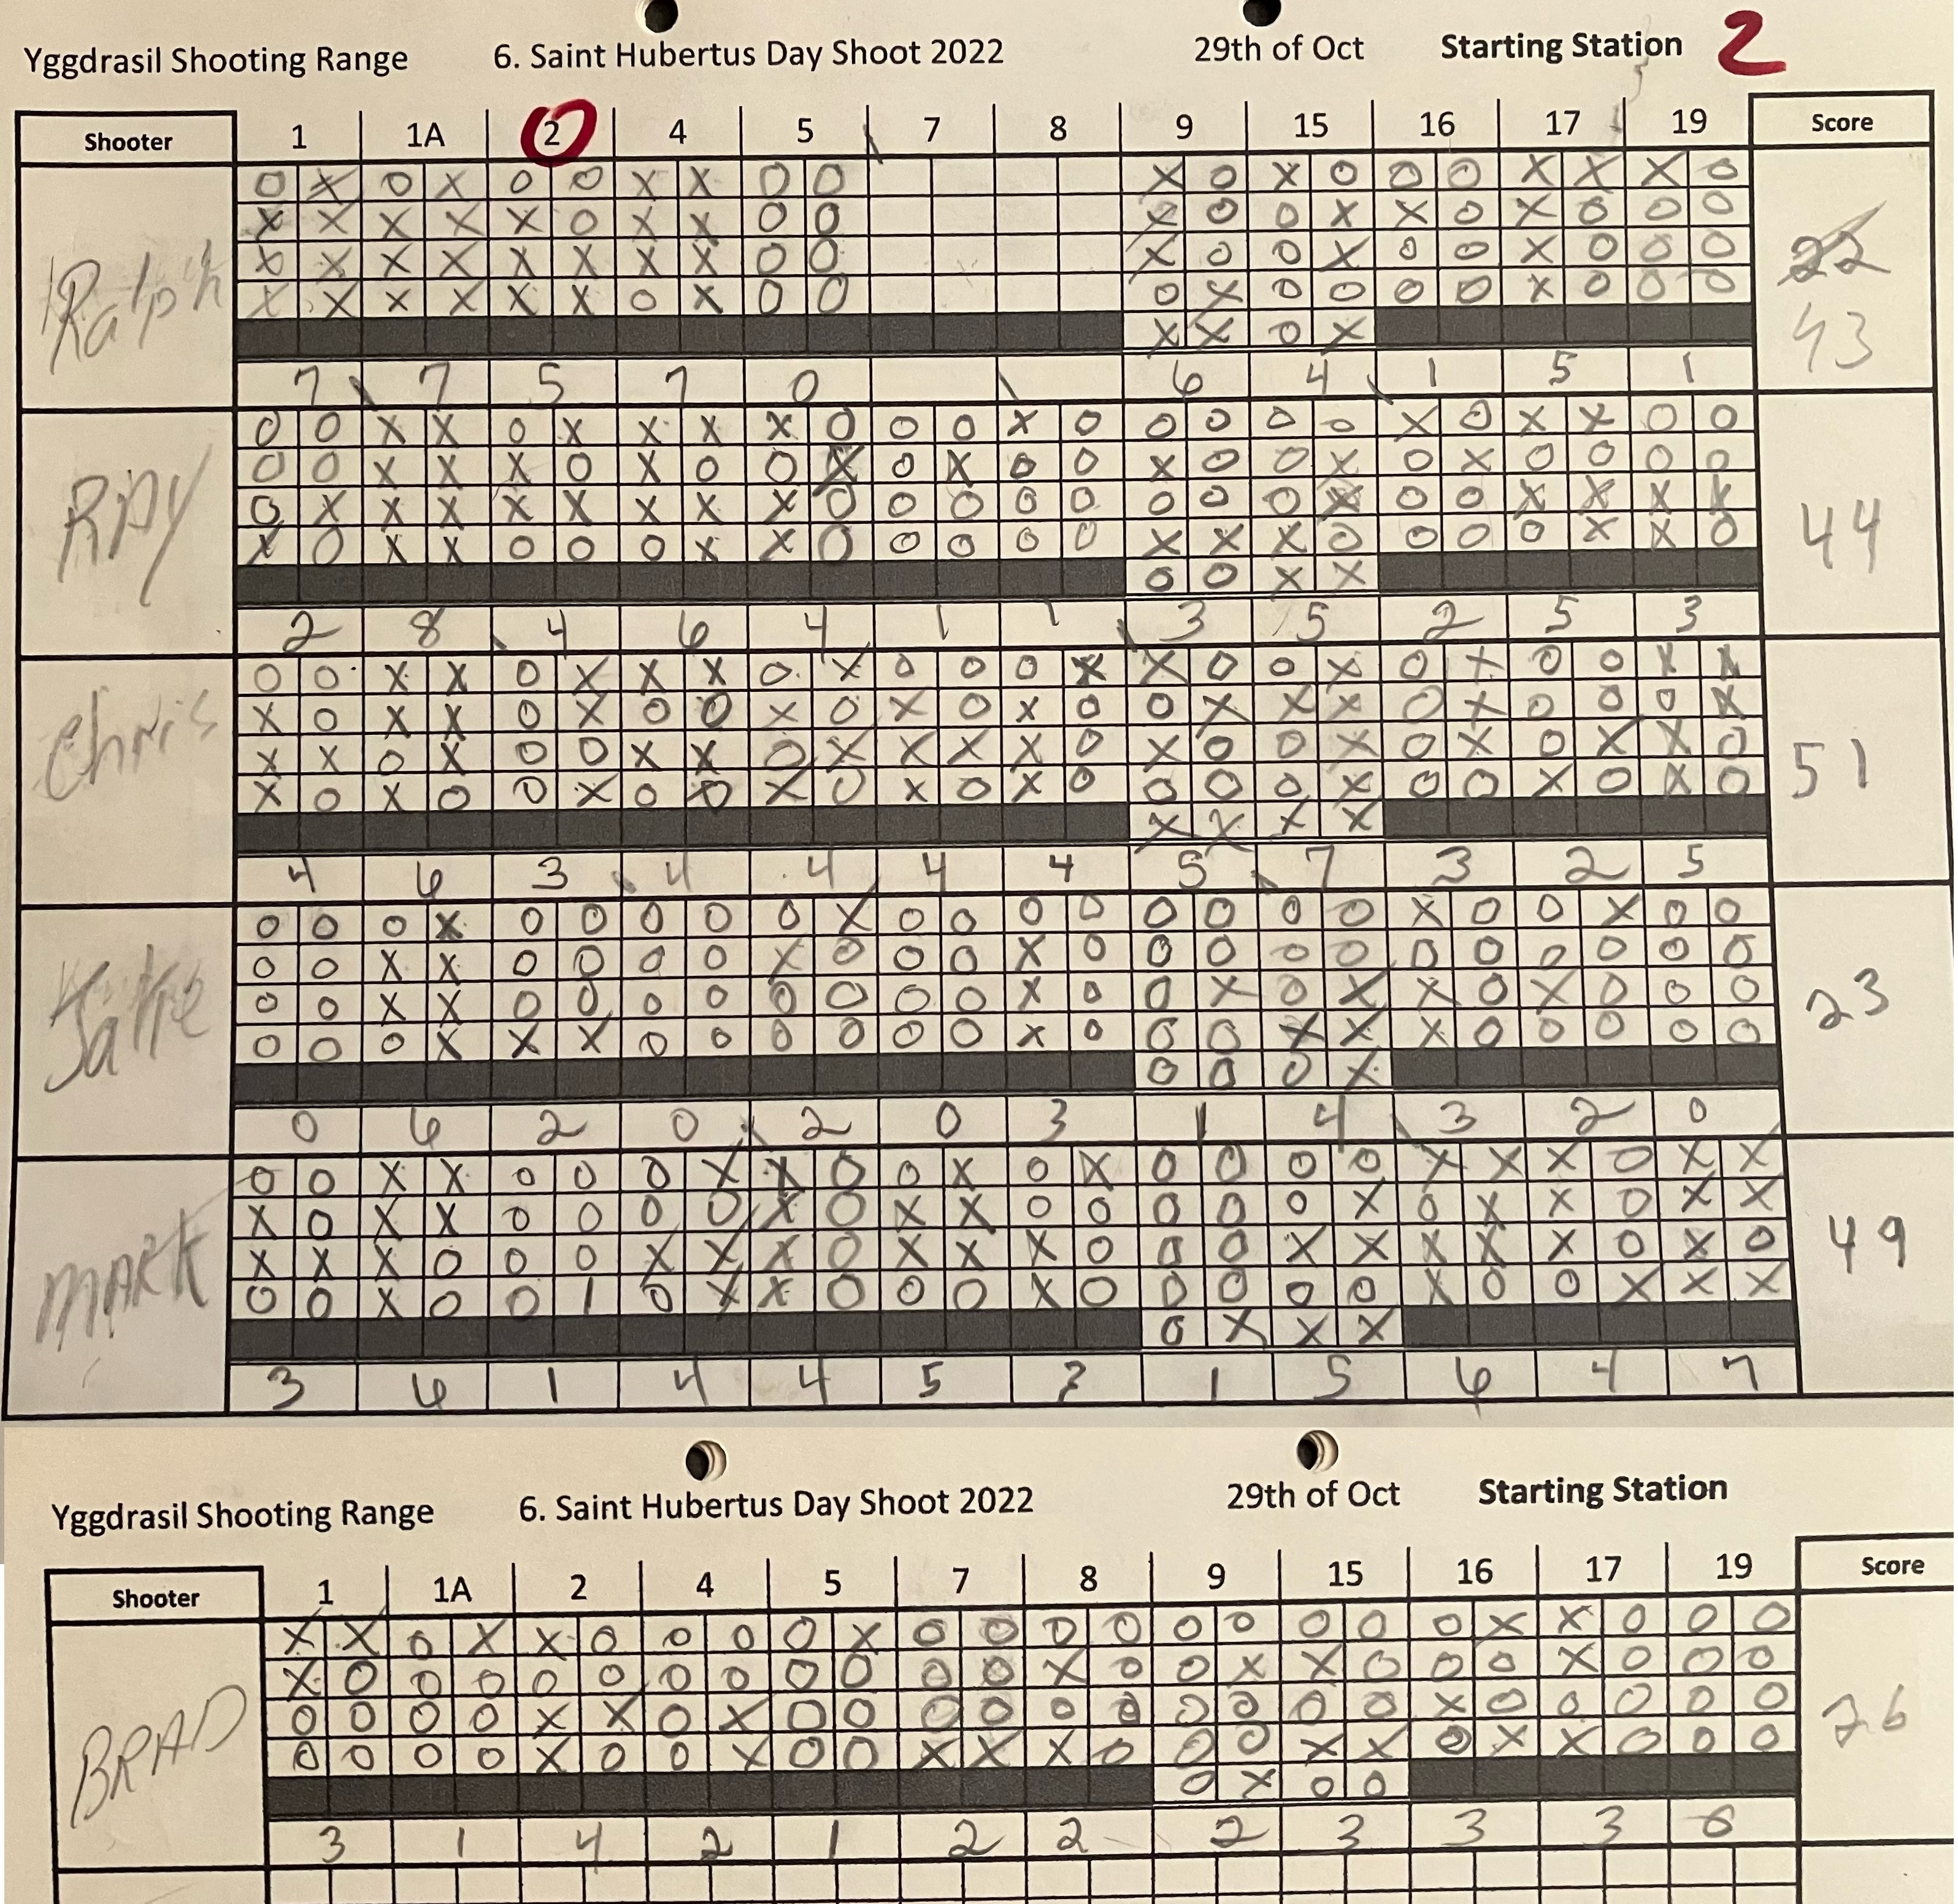 Yggdrasil Shooting Range 6. Saint Hubertus Day Shoot 2022 29th of Oct Starting Station 2
Shooter 1 1A 2 4 5 7 8 9 15 16 17 19 Score
O X O X O O X X O O X O X O O O X X X O
X X X X X O X X O O X O O X X O X O O O
Ralph X X X X X X X X O O X O O X O O X O O O 22
X X X X X X O X O O O X O O O O X O O O
X X O X 43
7 7 5 7 0 6 4 1 5 1
O O X X O X X X X O O O X O O O O O X O X X O O
O O X X X O X O O X O X O O X O O X O X O O O O
RAY O X X X X X X X X O O O O O O O O X O O X X X X 44
X O X X O O O X X O O O O O X X X O O O O X X O
O O X X
2 8 4 6 4 1 1 3 5 2 5 3
O O X X O X X X O X O O O X X O O X O X O O X X
X O X X O X O O X O X O X O O X X X O X O O O X
Chris X X O X O O X X O X X X X O X O O X O X O X X O 51
X O X O O X O O X O X O X O O O O X O O X O X O
X X X X
4 6 3 4 4 4 4 5 7 3 2 5
O O O X O O O O O X O O O O O O O O X O O X O O
O O X X O O O O X O O O X O O O O O O O O O O O
O O X X O O O O O O O O X O O X O X X O X O O O 23
O O O X X X O O O O O O X O O O X X X O O O O O
O O O X
0 6 2 0 2 0 3 1 4 3 2 0
O O X X O O O X X O O X O X O O O O X X X O X X
X O X X O O O O X O X X O O O O O X O X X O X X
MARK X X X O O O X X X O X X X O O O X X X X X O X O 49
O O X O O 1 O X X O O O X O O O O O X O O X X X
O X X X
3 6 1 4 4 5 3 1 5 6 4 7
Yggdrasil Shooting Range 6. Saint Hubertus Day Shoot 2022 29th of Oct Starting Station
Shooter 1 1A 2 4 5 7 8 9 15 16 17 19 Score
X X O X X O O O O X O O O O O O O O O X X O O O
X O O O O O O O O O O O X O O X X O O O X O O O
BRAD O O O O X X O X O O O O O O O O O O X O O O O O 26
O O O O X O O X O O X X X O O O X X O X X O O O
O X O O
3 1 4 2 1 2 2 2 3 3 3 0